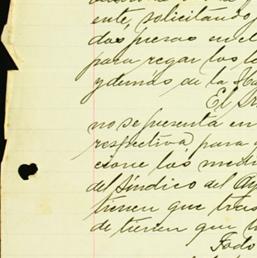 ente, solicitando
das piezas en el
para regar los
y demas de la Ha
El Sr
no se presenta en
respectiva, para
cione los med
del Síndico del Ay
tienen que tras
de tienen que
Todo